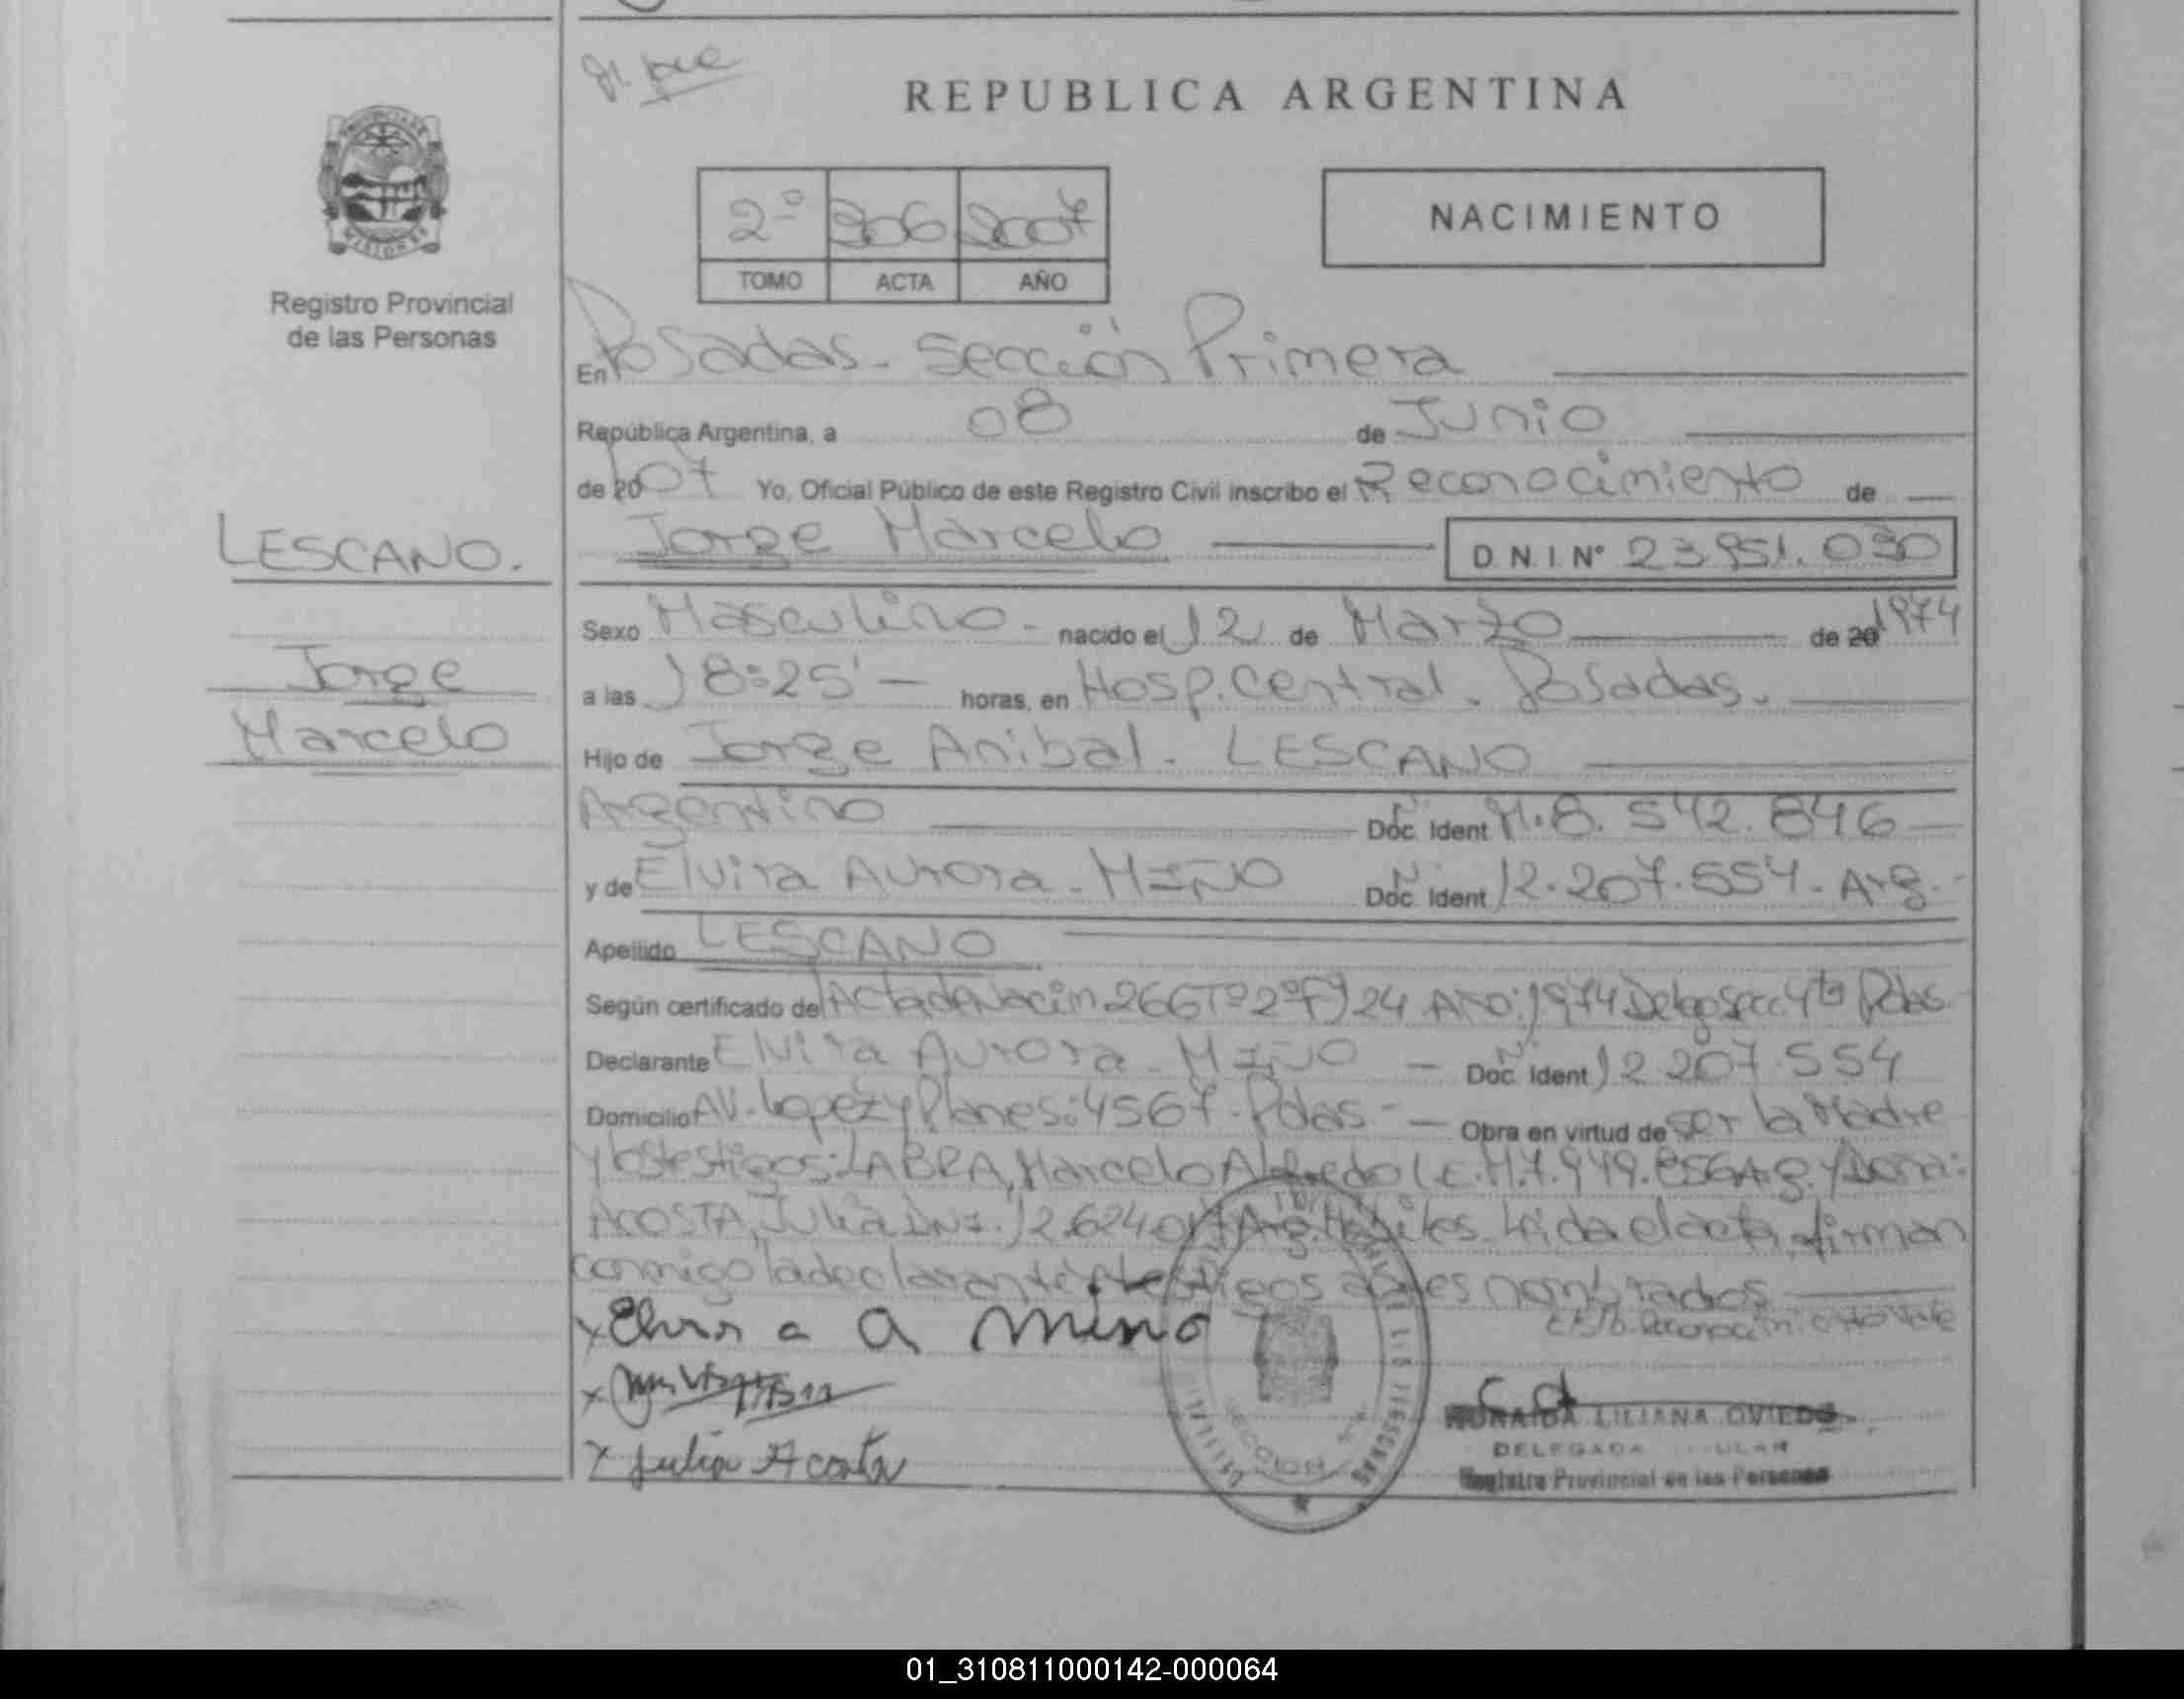 REPUBLICA ARGENTINA
2º 306 2007
TOMO ACTA AÑO
NACIMIENTO
Registro Provincial
de las Personas
LESCANO.
Jorge
Marcelo
En Posadas - Sección Primera
República Argentina, a 08 de Junio
de 2007 Yo, Oficial Público de este Registro Civil inscribo el Reconocimiento de
Jorge Marcelo D.N.I. Nº 23.951.030
Sexo Masculino - nacido el 12 de Marzo de 20 1974
a las 18:25' - horas, en Hosp. Central. Posadas.
Hijo de Jorge Anibal. LESCANO
Argentino Doc. Ident Nº M.8.542.846
y de Elvira Aurora. MIÑO Doc. Ident Nº 12.207.554 - Arg.
Apellido LESCANO
Según certificado del Acta de Nacim 266 Tº 2º Fº 124 AÑO: 1974 Deleg. Secc 4ta Pdas.
Declarante Elvira Aurora MIÑO - Doc. Ident Nº 12.207.554
Domicilio AV. Lopez y Planes: 4567 - Pdas - Obra en virtud de ser la Madre
y los testigos: LABRA, Marcelo Alfredo L.E.M.7.949.856 Arg. y
ACOSTA, Julia DNI. 12.624.0 Arg. Habiles. Leida el acta, firman
conmigo la declarante y testigos antes nombrados.
x Elvira A Miño
x
x Julia Acosta
LILIANA OVIEDO
DELEGADA
Registro Provincial de las Personas
01_310811000142-000064